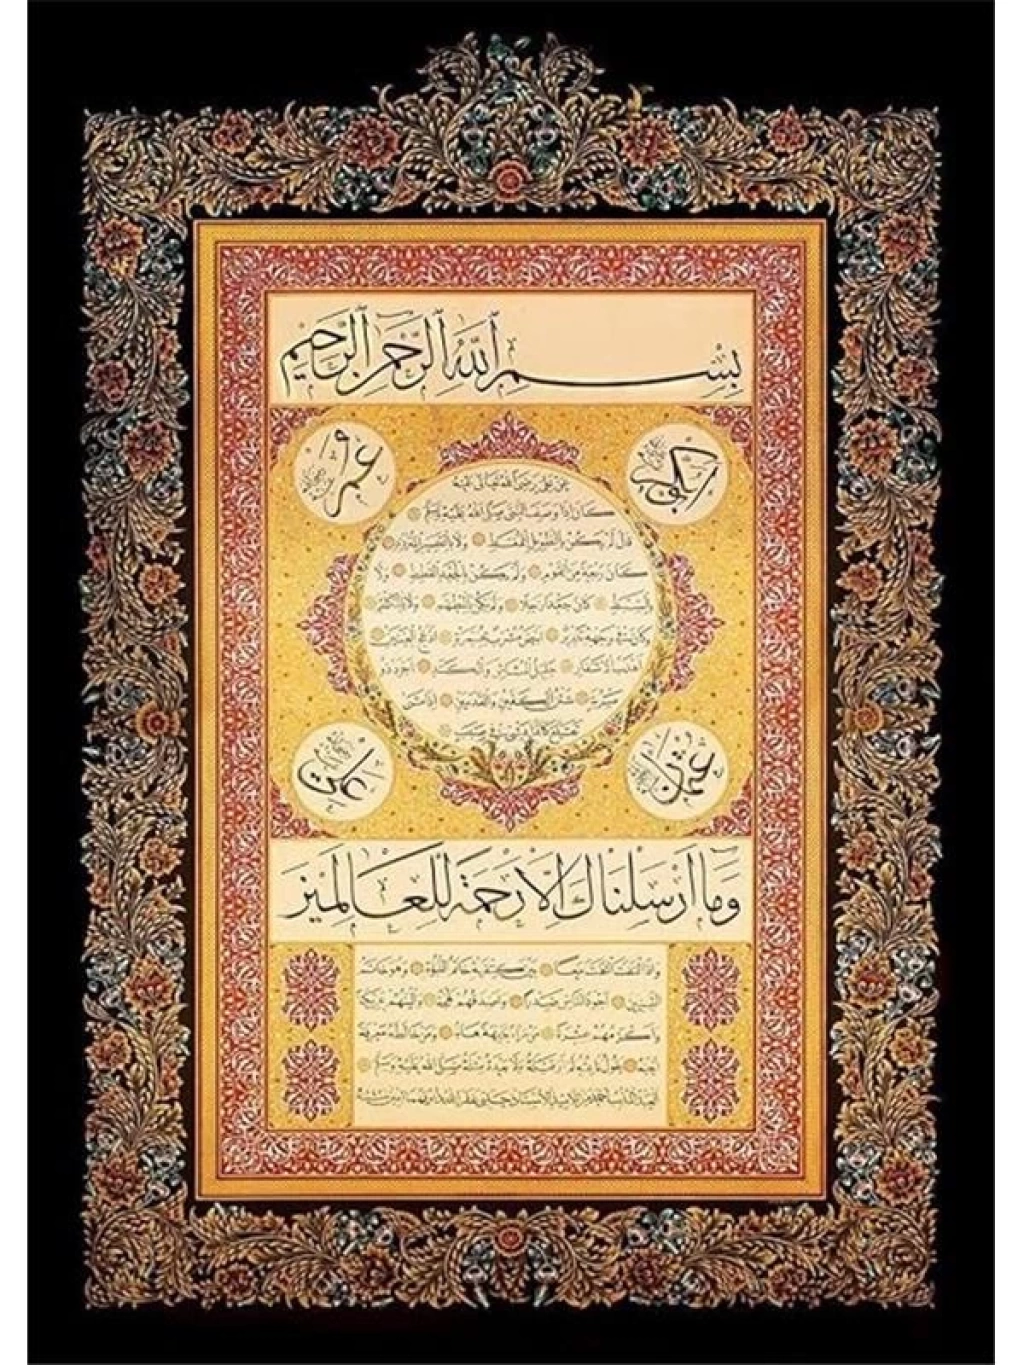 بِسْمِ اللّٰهِ الرَّحْمٰنِ الرَّحِيمِ
أبو بكر
عمر
عن علي رضي الله تعالى عنه
كان إذا وصف النبي صلى الله عليه وسلم
قال لم يكن بالطويل الممغط ولا بالقصير المتردد
كان ربعة من القوم ولم يكن بالجعد القطط ولا
بالسبط كان جعدا رجلا ولم يكن بالمطهم ولا بالمكلثم
وكان في وجهه تدوير أبيض مشرب بحمرة أدعج العينين
أهدب الأشفار جليل المشاش والكتد أجرد ذو
مسربة شثن الكفين والقدمين إذا مشى
تقلع كأنما يمشي في صبب
عثمان
علي
وَمَا أَرْسَلْنَاكَ إِلَّا رَحْمَةً لِلْعَالَمِينَ
وإذا التفت التفت معا بين كتفيه خاتم النبوة وهو خاتم
النبيين أجود الناس صدرا وأصدقهم لهجة وألينهم عريكة
وأكرمهم عشرة من رآه بديهة هابه ومن خالطه معرفة
أحبه يقول ناعته لم أر قبله ولا بعده مثله صلى الله عليه وسلم